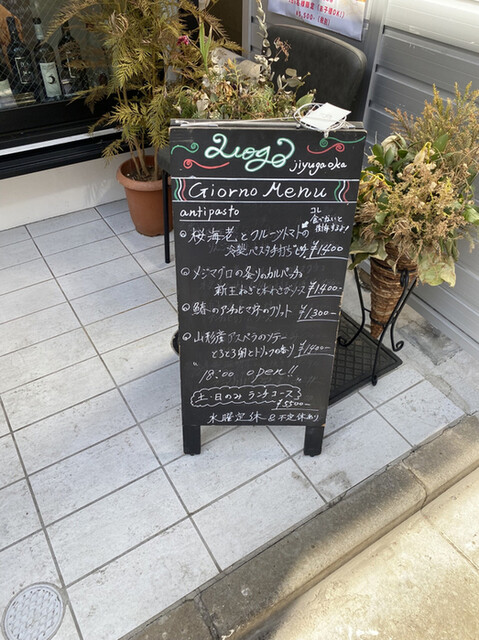 (お子様OK!)
¥5,500-(税別)
Luogo
jiyugaoka
Giorno Menu
antipasto
コレ
食べないと
後悔するよ!
桜海老とフルーツトマトの
冷製パスタ手打ち ¥1400
メジマグロの炙りのカルパッチョ
新玉ねぎと本わさびソース ¥1400-
鰆のアオサのフリット ¥1300-
山形産アスパラのソテー
とろとろ卵とトリュフの香り ¥1400-
"18:00 open!!"
土・日のみランチコース
¥5500-
水曜定休&不定休あり